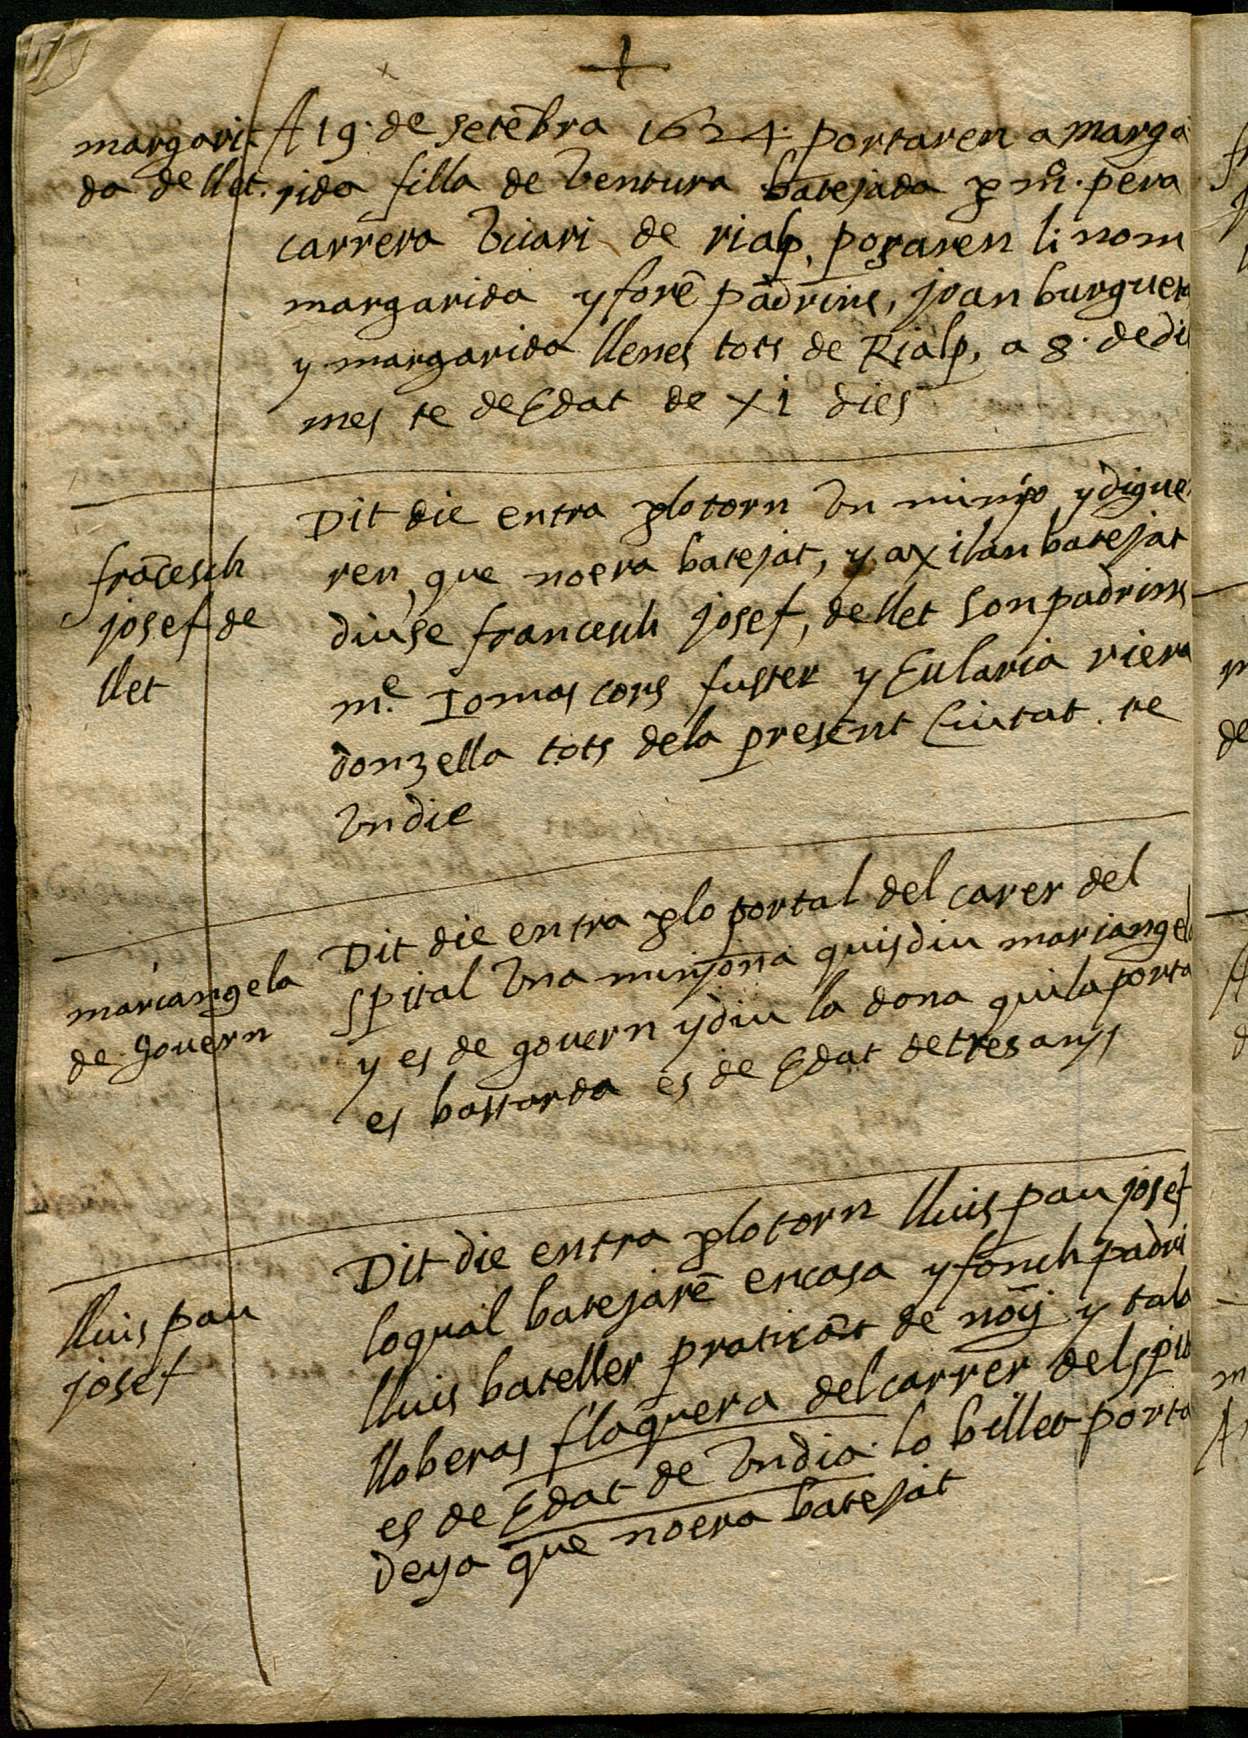 margari
da de llet.
A 19. de setēbra 1624. portaren a marga
rida filla de Ventura batejada p mn. pera
carrera Viciari de rialp, posaren li nom
margarida y forē padrins, joan burguera
y margarida llenes tots de Rialp, a 8. de dit
mes te de Edat de xi dies
frācesch
josef de
llet
Dit die entra plo torn Vn minyo y digue
ren que no era batejat, y axi lan batejat
diuse francesch josef, de llet son padrins
me. Tomas cors fuster y Eularia riera
donzella tots de la present Ciutat. te
Vn die
mariangela
de govern
Dit die entra plo portal del carer del
spital Vna minyona quis diu mariangela
y es de govern y diu la dona qui la porta
es bastarda es de Edat de tres anys
lluis pau
josef
Dit die entra plo torn lluis pau josef
lo qual batejarē en casa y fonch padri
lluis bateller praticāt de nōy y tala
lloberas flaquera del carrer del spit
es de Edat de Vn dia. lo billet porta
deya que no era batejat